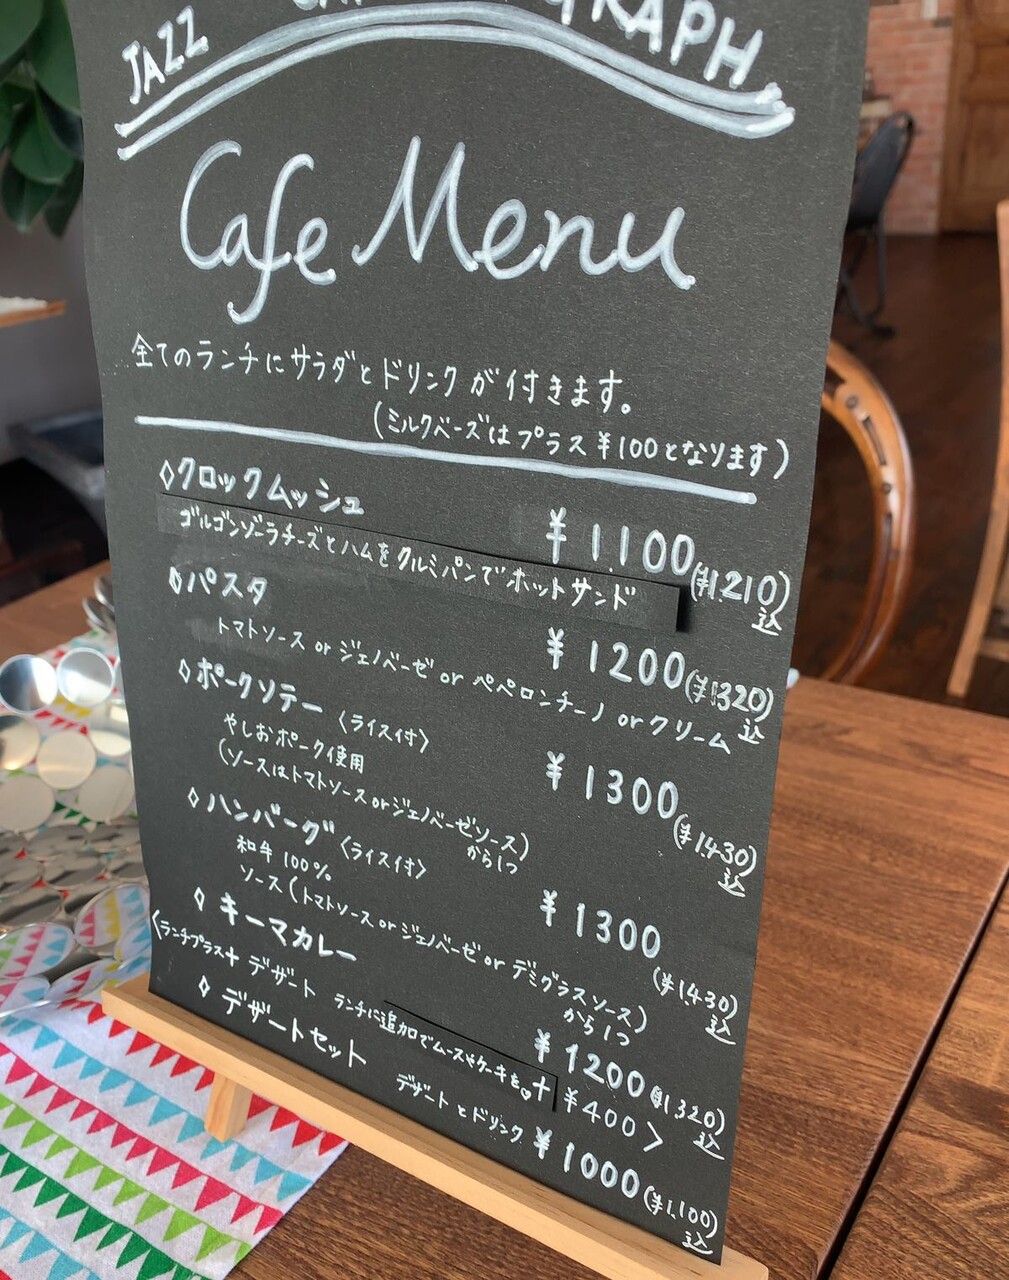 JAZZ
Cafe Menu
全てのランチにサラダとドリンクが付きます。
(ミルクベーズはプラス¥100となります)
◇クロックムッシュ ¥1,100(¥1,210)込
ゴルゴンゾーラチーズとハムをクルミパンでホットサンド
◇パスタ ¥1200(¥1320)込
トマトソース or ジェノベーゼ or ペペロンチーノ or クリーム
◇ポークソテー〈ライス付〉 ¥1300(¥1,430)込
やしおポーク使用
(ソースはトマトソース or ジェノベーゼソース)から1つ
◇ハンバーグ〈ライス付〉 ¥1300(¥1,430)込
和牛100%
ソース(トマトソース or ジェノベーゼ or デミグラスソース)から1つ
◇キーマカレー ¥1200(¥1320)込
〈ランチプラス+デザート ランチに追加でムースやケーキを♡+¥400〉
◇デザートセット デザートとドリンク ¥1000(¥1,100)込